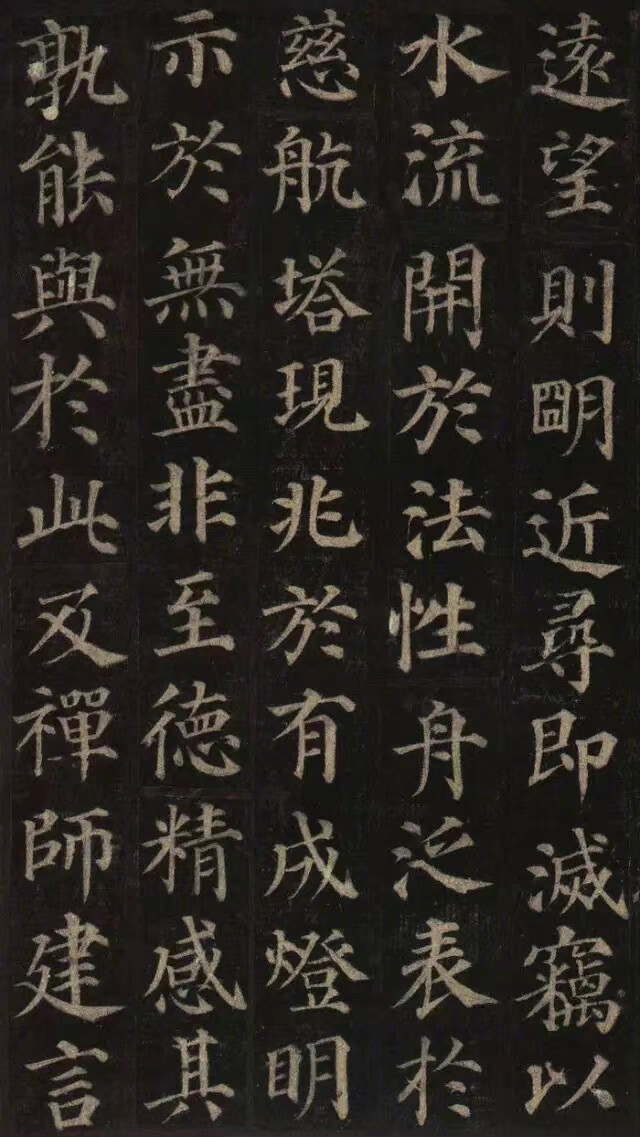 遠望則朙近尋即滅竊以
水流開於法性舟泛表於
慈航塔現兆於有成燈明
示於無盡非至德精感其
孰能與於此及禪師建言